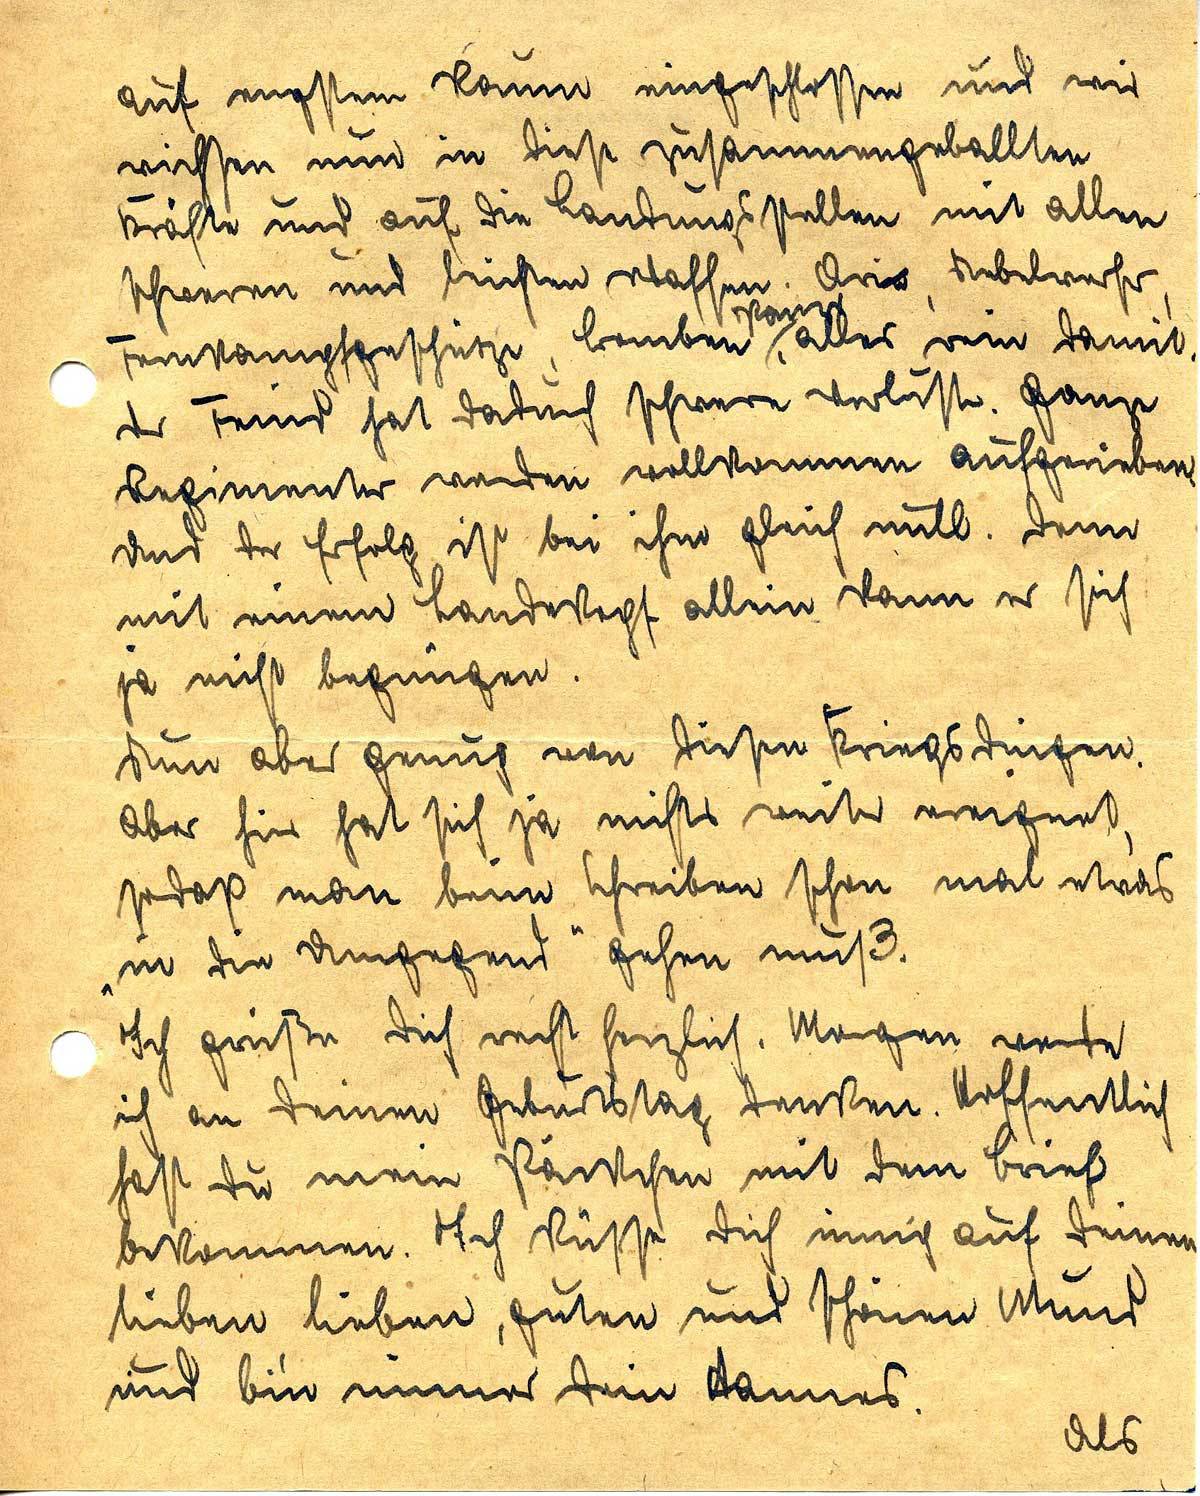 auf engstem Raum eingeschlossen und wir
wichsen nun in diese zusammengeballten
Kräfte und auf die Landungsstellen mit allen
schweren und leichten Waffen. Ari, Nebelwerfer,
Fernkampfgeschütze, Bomben, Panzer alles rein damit.
Der Feind hat dadurch schwere Verluste. Ganze
Regimenter werden vollkommen aufgerieben
und der Erfolg ist bei ihm gleich null. Denn
mit einem Landekopf allein kann er sich
ja nicht begnügen.
Nun aber genug von diesen Kriegsdingen.
Aber hier hat sich ja nichts weiter ereignet,
sodaß man beim Schreiben schon mal etwas
„in die Umgegend" gehen muß.
Ich grüße Dich recht herzlich. Morgen werde
ich an Deinen Geburtstag denken. Hoffentlich
hast Du mein Päckchen mit dem Brief
bekommen. Ich küsse Dich innig auf Deinen
lieben lieben, guten und schönen Mund
und bin immer Dein Hannes.
Als